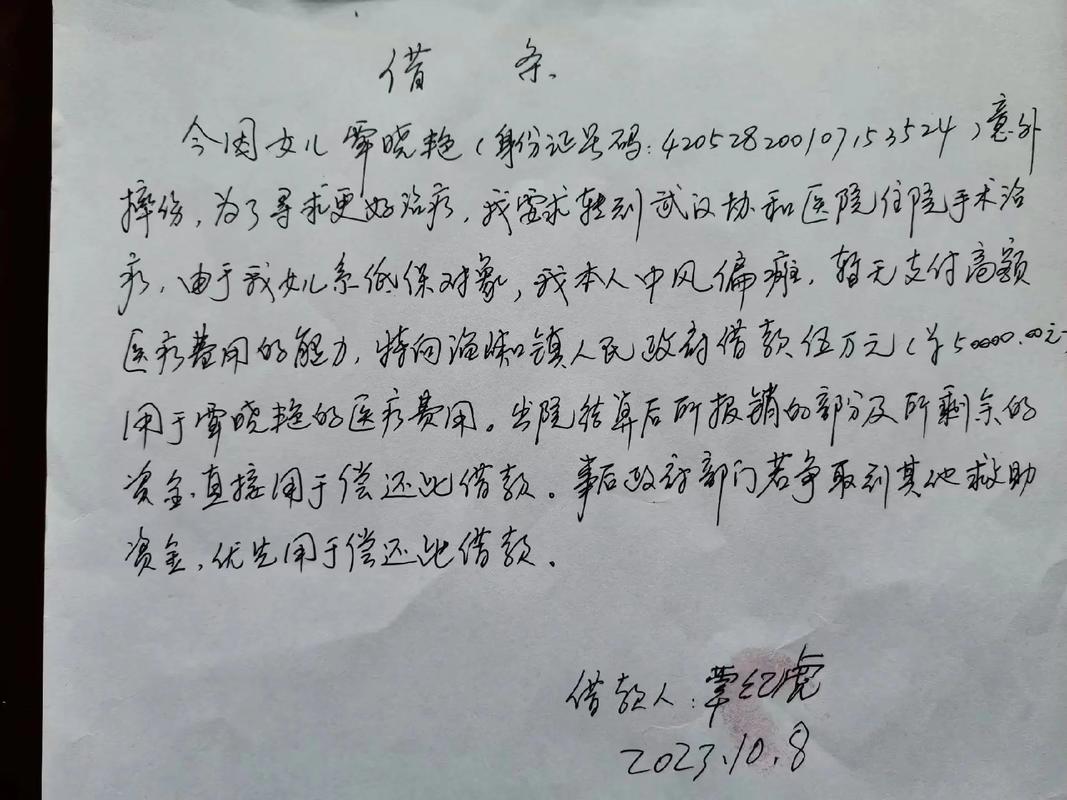 借 条
今因女儿覃晓艳(身份证号码:420528200107153524)意外
摔伤,为了寻求更好治疗,我要求转到武汉协和医院住院手术治
疗,由于我女儿系低保对象,我本人中风偏瘫,暂无支付高额
医疗费用的能力,特向渔峡口镇人民政府借款伍万元(¥50000.00元)
用于覃晓艳的医疗费用。出院结算后所报销的部分及所剩余的
资金,直接用于偿还此借款。事后政府部门若争取到其他救助
资金,优先用于偿还此借款。
借款人:覃纪虎
2023.10.8